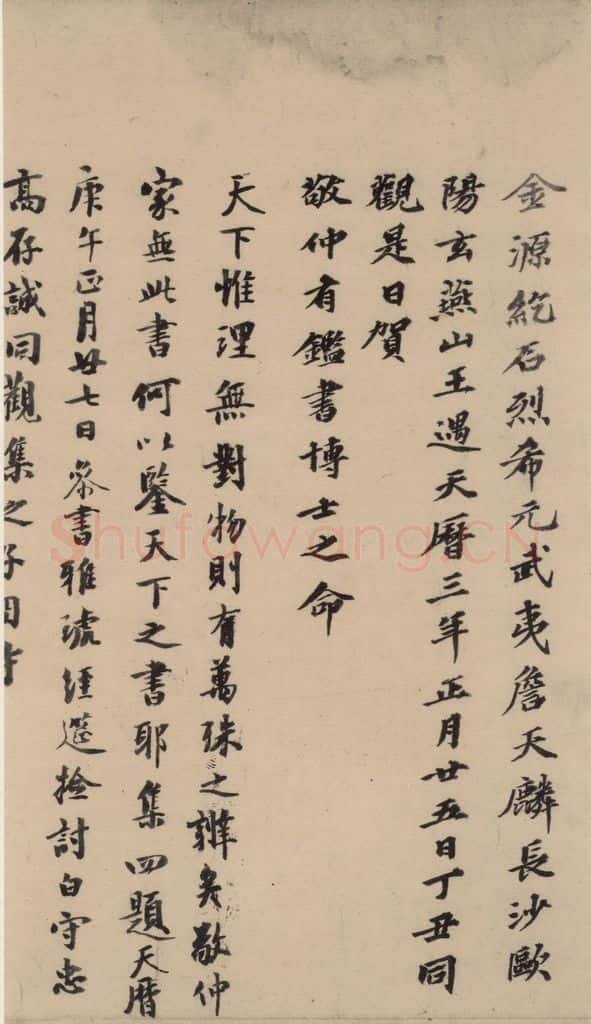 金源紇石烈希元武夷詹天麟長沙歐
陽玄燕山王遇天曆三年正月廿五日丁丑同
觀是日賀
敬仲有鑑書博士之命
天下惟理無對物則有萬殊之辨矣敬仲
家無此書何以鑒天下之書耶集四題天曆
庚午正月廿七日叅書雅琥經筵撿討白守忠
高存誠同觀集之子
Shufawang.CN